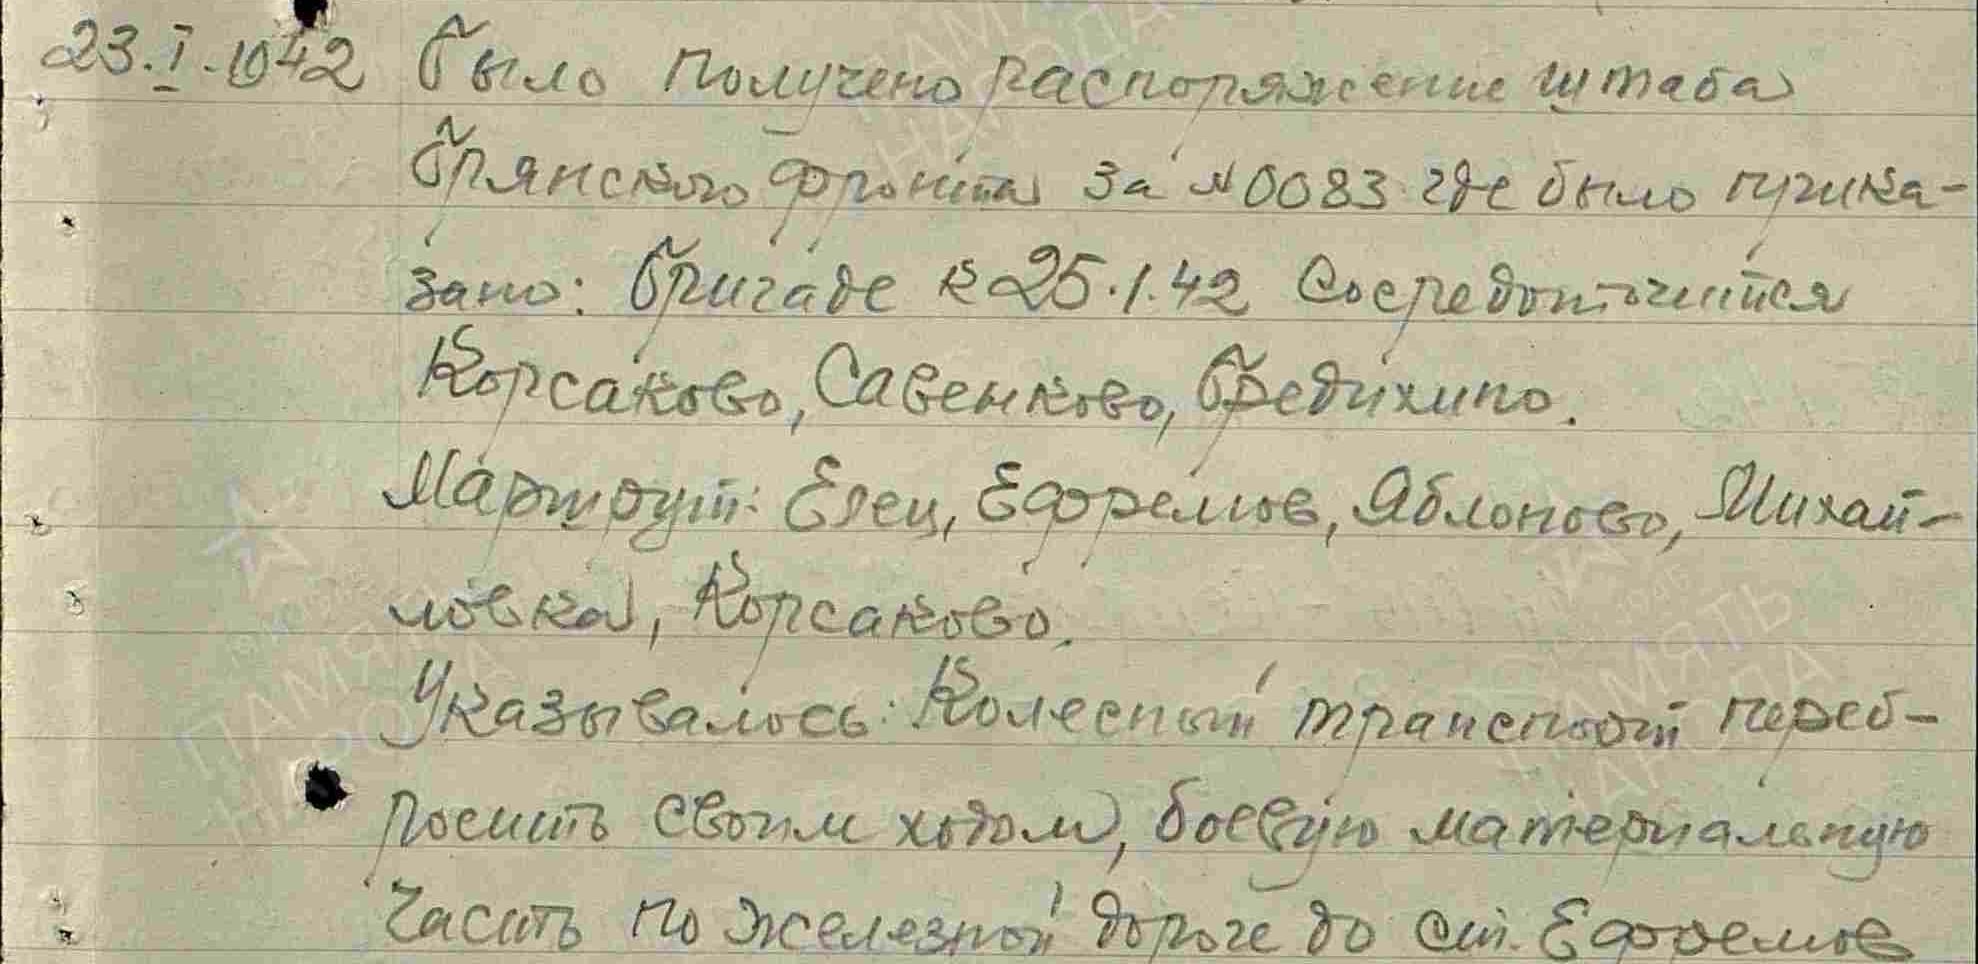 23.I.1942 Было получено распоряжение штаба
Брянского фронта за №0083 где было прика-
зано: Бригаде к 25.1.42 Сосредоточится
Корсаково, Савенково, Бредихино.
Маршрут: Елец, Ефремов, Яблоново, Михай-
ловка, Корсаково.
Указывалось: Колесный транспорт переб-
росить своим ходом, боевую материальную
часть по железной дороге до ст. Ефремов
ПАМЯТЬ
НАРОДА